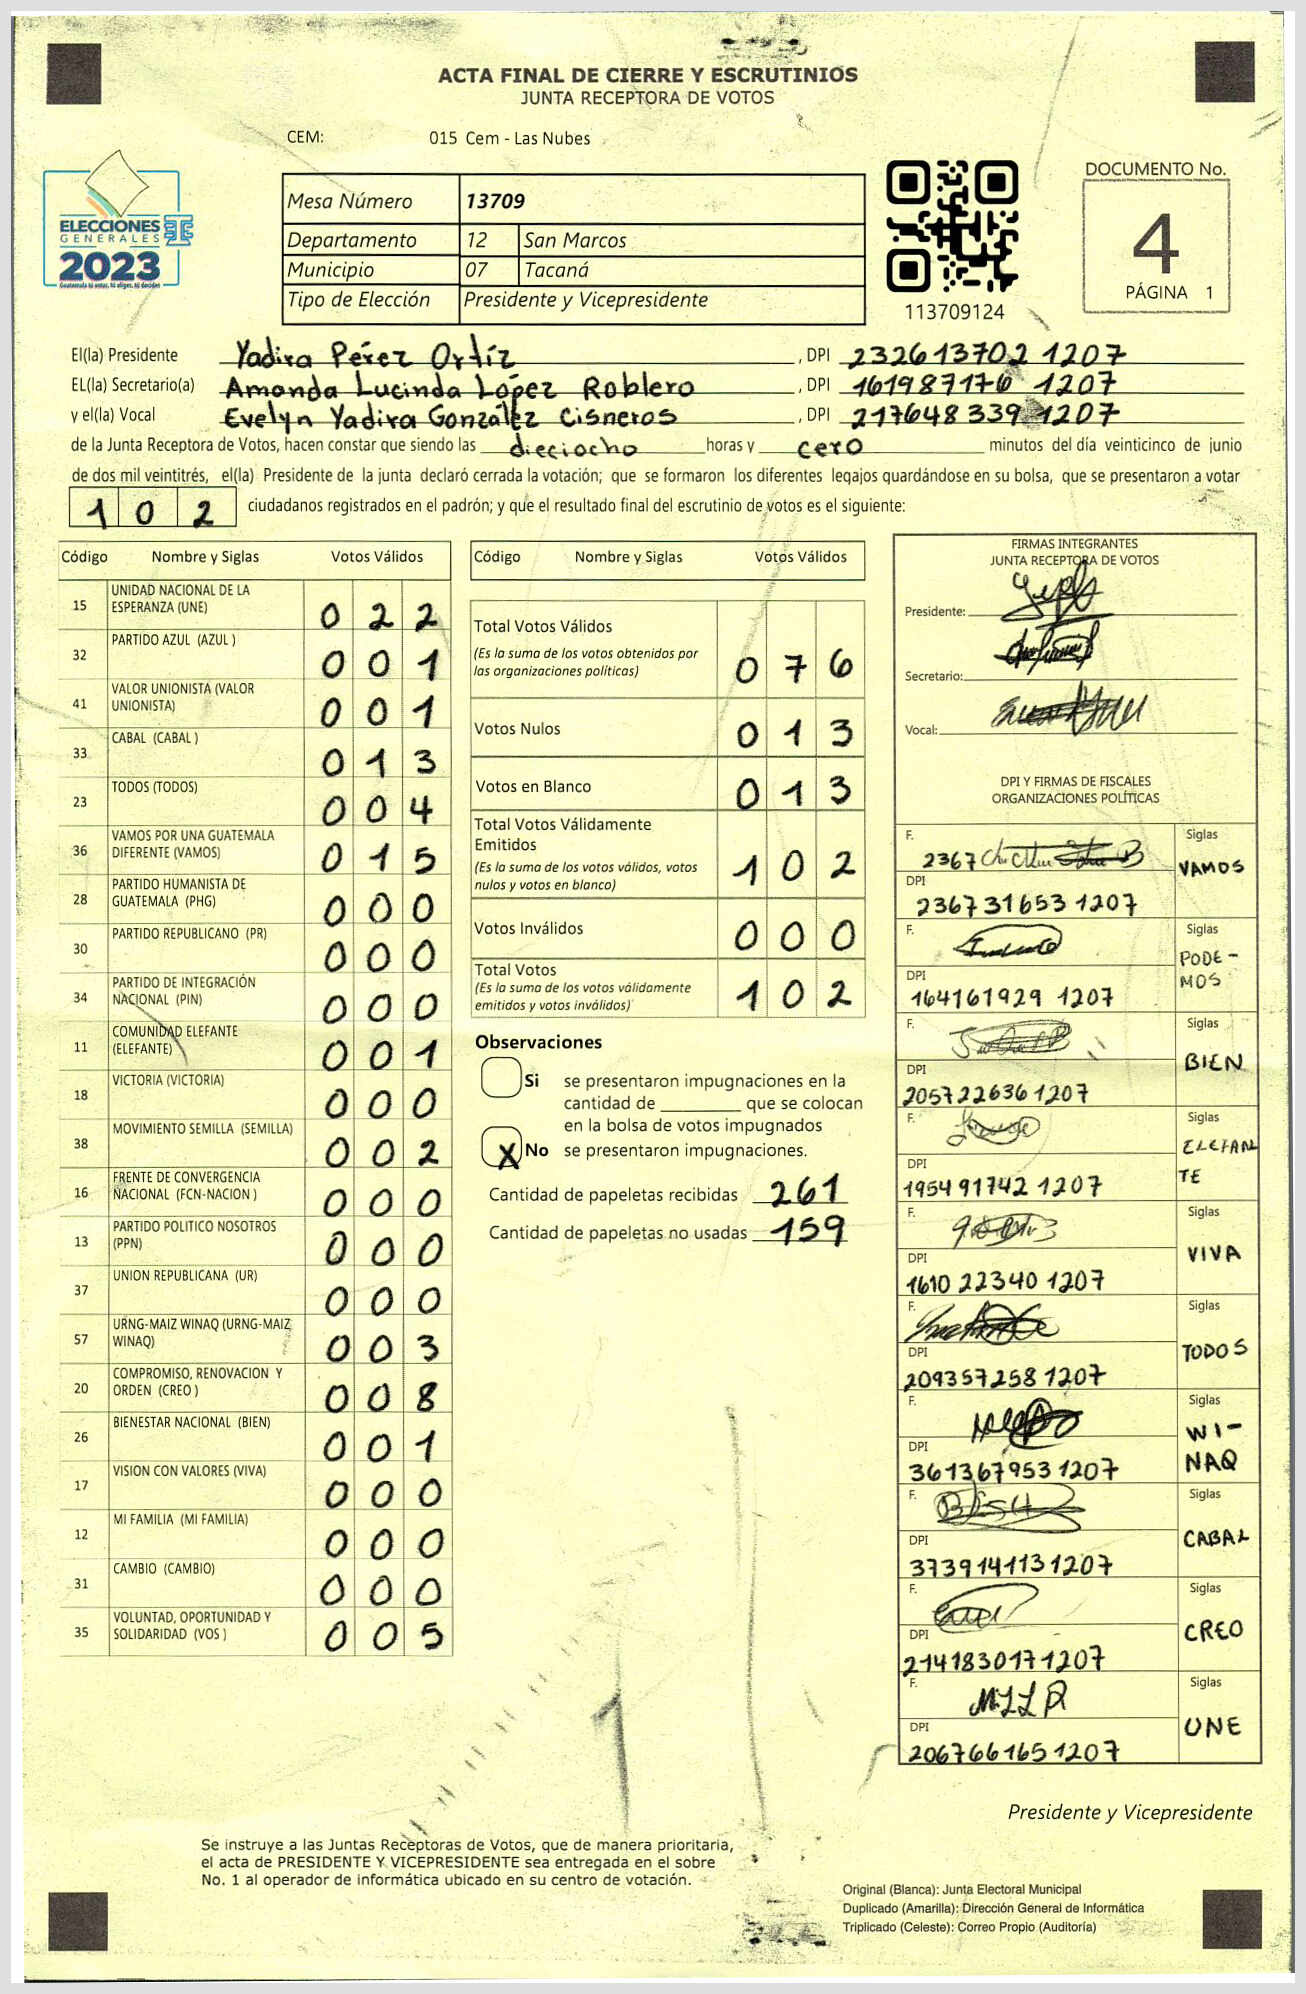 ACTA FINAL DE CIERRE Y ESCRUTINIOS
JUNTA RECEPTORA DE VOTOS
CEM: 015 Cem - Las Nubes
ELECCIONES
GENERALES
2023
Mesa Número 13709
Departamento 12 San Marcos
Municipio 07 Tacaná
Tipo de Elección Presidente y Vicepresidente
113709124
DOCUMENTO No.
4
PÁGINA 1
El(la) Presidente Yadira Pérez Ortíz, DPI 232613702 1207
EL(la) Secretario(a) Amanda Lucinda López Roblero, DPI 161987176 1207
y el(la) Vocal Evelyn Yadira González Cisneros, DPI 217648339 1207
de la Junta Receptora de Votos, hacen constar que siendo las dieciocho horas y cero minutos del día veinticinco de junio
de dos mil veintitrés, el(la) Presidente de la junta declaró cerrada la votación; que se formaron los diferentes legajos guardándose en su bolsa, que se presentaron a votar
102 ciudadanos registrados en el padrón; y que el resultado final del escrutinio de votos es el siguiente:
Código Nombre y Siglas Votos Válidos
15 UNIDAD NACIONAL DE LA ESPERANZA (UNE) 022
32 PARTIDO AZUL (AZUL ) 001
41 VALOR UNIONISTA (VALOR UNIONISTA) 001
33 CABAL (CABAL ) 013
23 TODOS (TODOS) 004
36 VAMOS POR UNA GUATEMALA DIFERENTE (VAMOS) 015
28 PARTIDO HUMANISTA DE GUATEMALA (PHG) 000
30 PARTIDO REPUBLICANO (PR) 000
34 PARTIDO DE INTEGRACIÓN NACIONAL (PIN) 000
11 COMUNIDAD ELEFANTE (ELEFANTE) 001
18 VICTORIA (VICTORIA) 000
38 MOVIMIENTO SEMILLA (SEMILLA) 002
16 FRENTE DE CONVERGENCIA NACIONAL (FCN-NACION ) 000
13 PARTIDO POLITICO NOSOTROS (PPN) 000
37 UNION REPUBLICANA (UR) 000
57 URNG-MAIZ WINAQ (URNG-MAIZ WINAQ) 003
20 COMPROMISO, RENOVACION Y ORDEN (CREO ) 008
26 BIENESTAR NACIONAL (BIEN) 001
17 VISION CON VALORES (VIVA) 000
12 MI FAMILIA (MI FAMILIA) 000
31 CAMBIO (CAMBIO) 000
35 VOLUNTAD, OPORTUNIDAD Y SOLIDARIDAD (VOS ) 005
Código Nombre y Siglas Votos Válidos
Total Votos Válidos 076
(Es la suma de los votos obtenidos por
las organizaciones políticas)
Votos Nulos 013
Votos en Blanco 013
Total Votos Válidamente
Emitidos 102
(Es la suma de los votos válidos, votos
nulos y votos en blanco)
Votos Inválidos 000
Total Votos 102
(Es la suma de los votos válidamente
emitidos y votos inválidos)
Observaciones
Si se presentaron impugnaciones en la
cantidad de ________ que se colocan
en la bolsa de votos impugnados
X No se presentaron impugnaciones.
Cantidad de papeletas recibidas 261
Cantidad de papeletas no usadas 159
FIRMAS INTEGRANTES
JUNTA RECEPTORA DE VOTOS
Presidente:
Secretario:
Vocal:
DPI Y FIRMAS DE FISCALES
ORGANIZACIONES POLÍTICAS
F. 2367 Siglas VAMOS
DPI 236731653 1207
F. Siglas PODE-
MOS
DPI 164161929 1207
F. Siglas BIEN
DPI 205722636 1207
F. Siglas ELEFAN
TE
DPI 195491742 1207
F. Siglas VIVA
DPI 1610 22340 1207
F. Siglas TODOS
DPI 209357258 1207
F. Siglas WI-
NAQ
DPI 361367953 1207
F. Siglas CABAL
DPI 373914113 1207
F. Siglas CREO
DPI 214183017 1207
F. Siglas UNE
DPI 206766165 1207
Presidente y Vicepresidente
Se instruye a las Juntas Receptoras de Votos, que de manera prioritaria,
el acta de PRESIDENTE Y VICEPRESIDENTE sea entregada en el sobre
No. 1 al operador de informática ubicado en su centro de votación.
Original (Blanca): Junta Electoral Municipal
Duplicado (Amarilla): Dirección General de Informática
Triplicado (Celeste): Correo Propio (Auditoría)